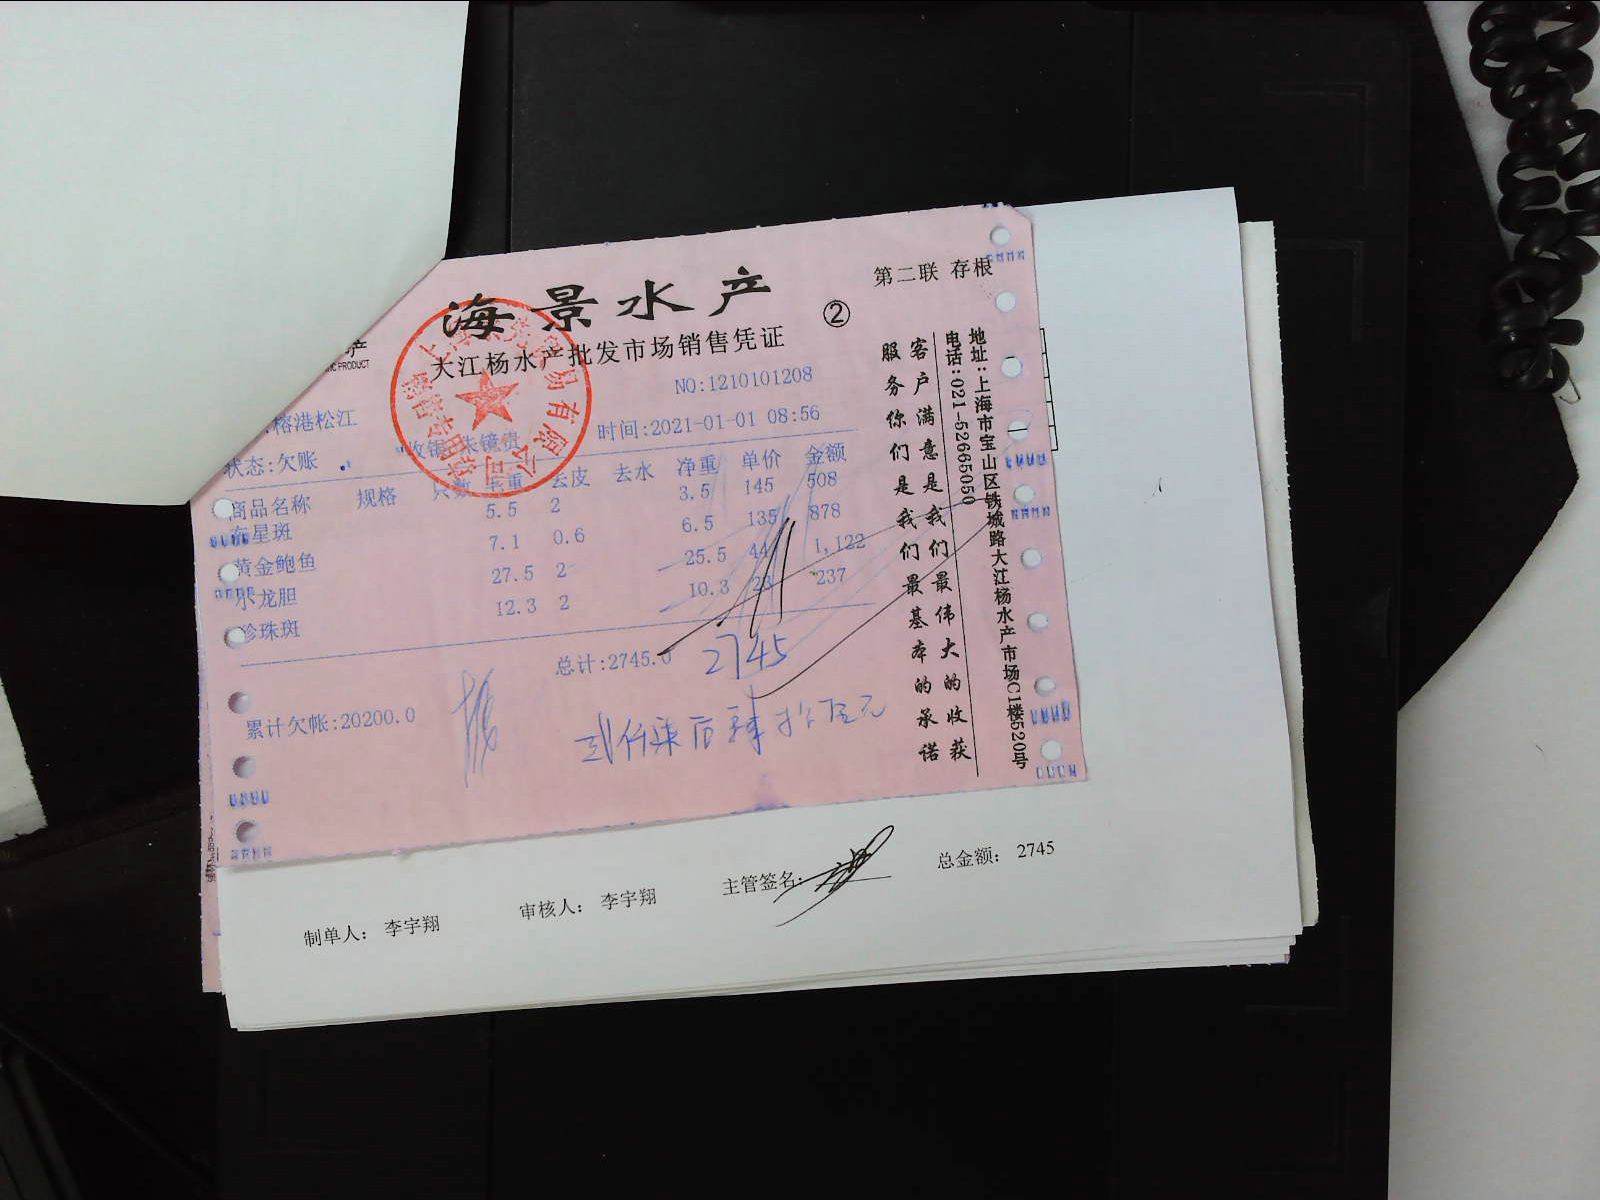 海景水产
②
第二联 存根
大江杨水产批发市场销售凭证
NIC PRODUCT
NO:1210101208
榕港松江
时间:2021-01-01 08:56
状态:欠账
收银 朱镜贵
商品名称 规格 只数 毛重 去皮 去水 净重 单价 金额
东星斑 5.5 2 3.5 145 508
黄金鲍鱼 7.1 0.6 6.5 135 878
小龙胆 27.5 2 25.5 44 1,122
珍珠斑 12.3 2 10.3 23 237
总计:2745.0
2745
累计欠帐:20200.0
贰仟柒佰肆拾伍元
客户满意是我们最伟大的收获
服务你们是我们最基本的承诺
地址:上海市宝山区铁城路大江杨水产市场C1楼520号
电话:021-52665050
制单人: 李宇翔
审核人: 李宇翔
主管签名:
总金额: 2745